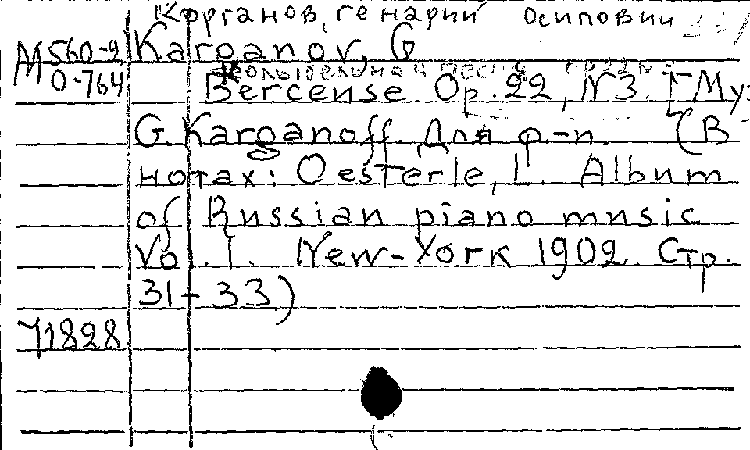 Корганов, Генарий Осипович
М 560-2 Karganov, G
О-764 Berceuse Op. 22, N3. [Му:
G. Karganoff. Для ф-п. (В
нотах: Oesterle, L. Album
of Russian piano music
Vol. I. New-York 1902. Стр.
31-33)
71828